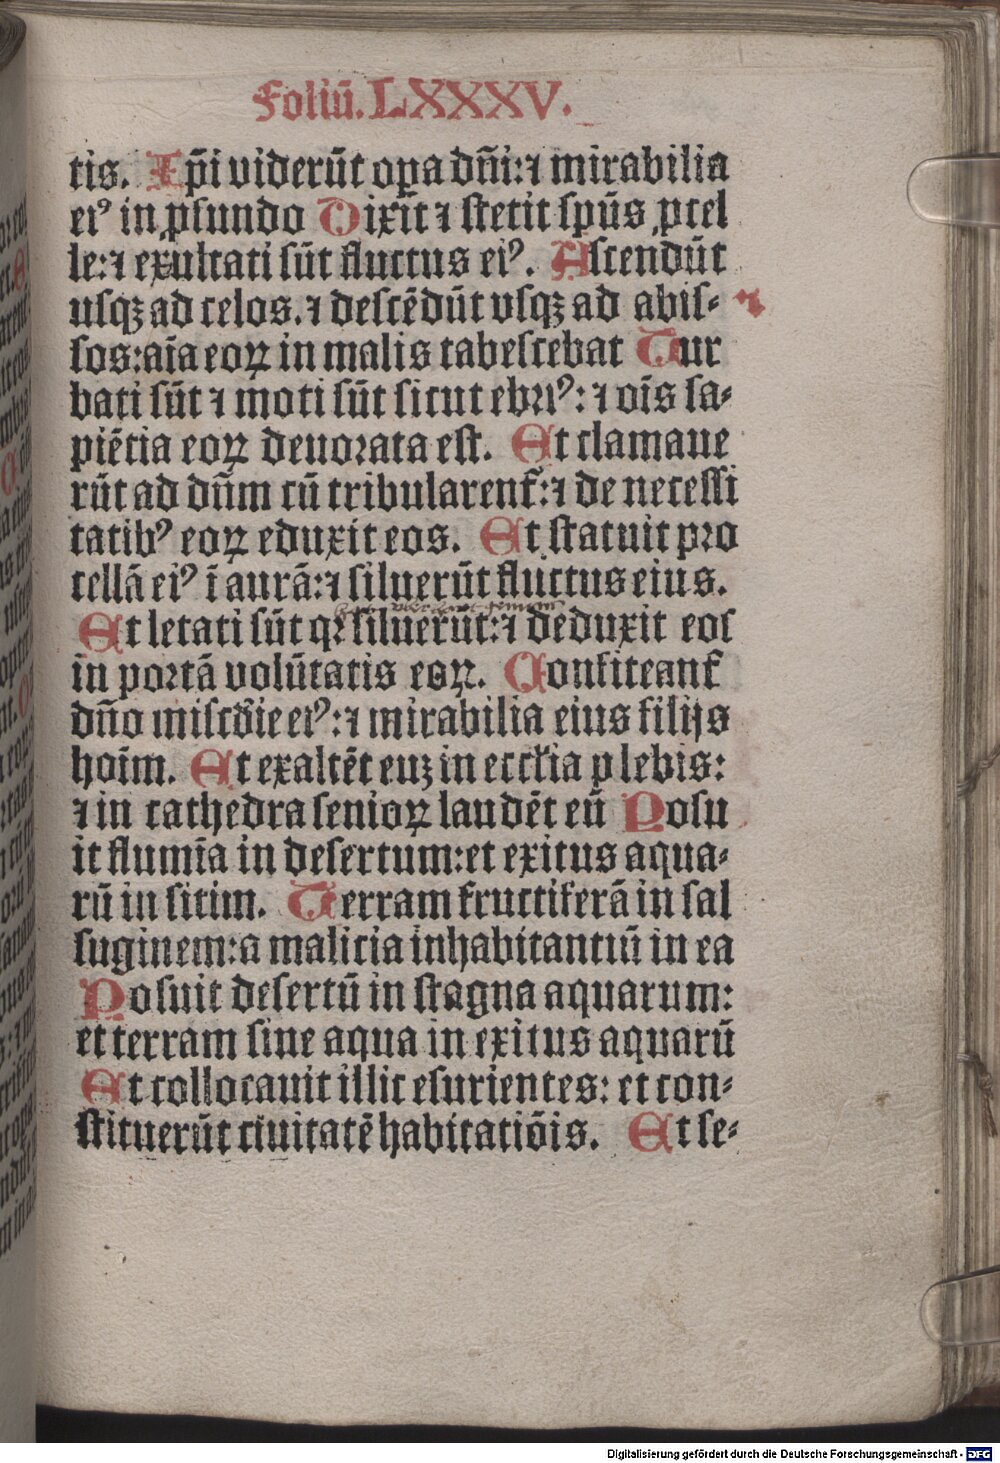 Foliū. LXXXV.
tis. Ip̄i viderūt oꝑa dn̄i:⁊ mirabilia
eiꝰ in ꝓfundo Dixit ⁊ stetit spūs ꝓcel
le:⁊ exultati sūt fluctus eiꝰ. Ascendūt
usqꝫ ad celos.⁊ descēdūt vsqꝫ ad abis-
sos:aīa eoꝝ in malis tabescebat Tur
bati sūt ⁊ moti sūt sicut ebriꝰ:⁊ oīs sa-
piētia eoꝝ deuorata est. Et clamaue
rūt ad dn̄m cū tribularent̄:⁊ de necessi
tatibꝰ eoꝝ eduxit eos. Et statuit pro
cellā eiꝰ ī aurā:⁊ siluerūt fluctus eius.
Et letati sūt qꝛ siluerūt:⁊ deduxit eos
in portā volūtatis eoꝝ. Confiteant̄
dn̄o miscd̄ie eiꝰ:⁊ mirabilia eius filijs
hoīm. Et exaltēt euꝫ in eccl̄ia plebis:
⁊ in cathedra senioꝝ laudēt eū Posu
it flumīa in desertum:et exitus aqua-
rū in sitim. Terram fructiferā in sal
suginem:a malicia inhabitantiū in ea
Posuit desertū in stagna aquarum:
et terram sine aqua in exitus aquarū
Et collocauit illic esurientes: et con-
stituerūt ciuitatē habitatiōis. Et se-
Digitalisierung gefördert durch die Deutsche Forschungsgemeinschaft - DFG